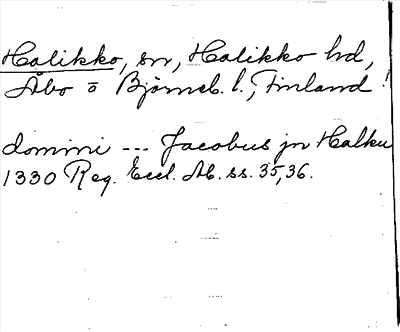 Halikko, sn, Halikko hd,
Åbo o Björneb. l., Finland!
domini --- Jacobus jn Halku
1330 Reg. Eccl. Ab. ss. 35,36.